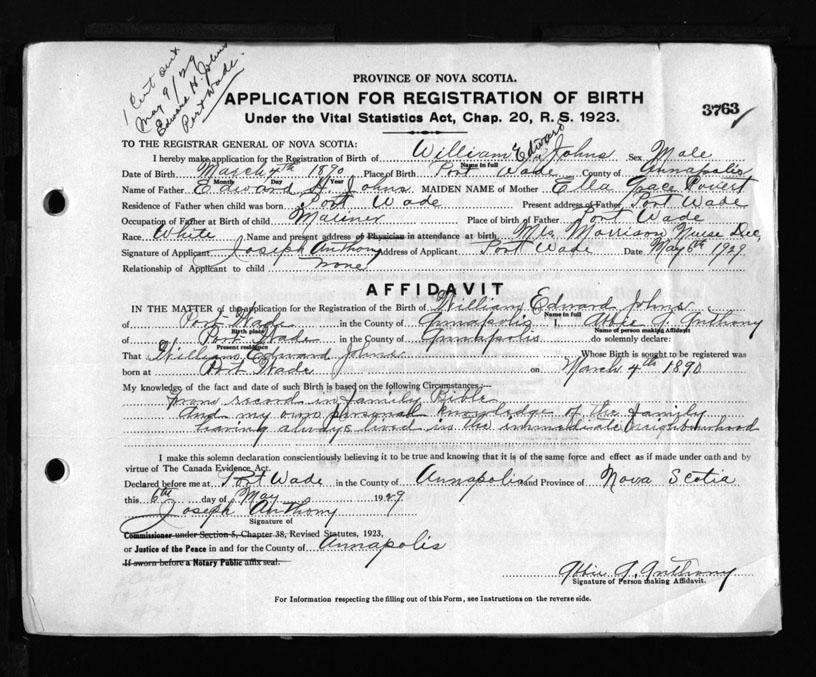 1 Cert out
May 9/29
Edward H. Johns
Port Wade.
PROVINCE OF NOVA SCOTIA.
APPLICATION FOR REGISTRATION OF BIRTH
3763
Under the Vital Statistics Act, Chap. 20, R. S. 1923.
TO THE REGISTRAR GENERAL OF NOVA SCOTIA:
I hereby make application for the Registration of Birth of William Edward Johns Sex Male
Name in full
Date of Birth March 4th 1890 Place of Birth Port Wade County of Annapolis
Month Day Year
Name of Father Edward H. Johns MAIDEN NAME of Mother Ella Grace
Residence of Father when child was born Port Wade Present address of Father Port Wade
Occupation of Father at Birth of child Mariner Place of birth of Father Port Wade
Race White Name and present address of Physician in attendance at birth Mrs Morrison Nurse Dec.
Signature of Applicant Joseph Anthony Address of Applicant Port Wade Date May 6th 1929
Relationship of Applicant to child none
AFFIDAVIT
IN THE MATTER of the application for the Registration of the Birth of William Edward Johns
Name in full
of Port Wade in the County of Annapolis I, Abbie J. Anthony
Birth place Name of person making Affidavit
of Port Wade in the County of Annapolis do solemnly declare:
Present residence
That William Edward Johns Whose Birth is sought to be registered was
born at Port Wade on March 4th 1890
My knowledge of the fact and date of such Birth is based on the following Circumstances:—
From record in family Bible
And my own personal knowledge of the family
having always lived in the immediate neighbourhood
I make this solemn declaration conscientiously believing it to be true and knowing that it is of the same force and effect as if made under oath and by
virtue of The Canada Evidence Act.
Declared before me at Port Wade in the County of Annapolis and Province of Nova Scotia
this 6th day of May 1929
Joseph Anthony
Signature of
Commissioner under Section 5, Chapter 38, Revised Statutes, 1923,
or Justice of the Peace in and for the County of Annapolis
If sworn before a Notary Public affix seal.
Abbie J. Anthony
Signature of Person making Affidavit.
For Information respecting the filling out of this Form, see Instructions on the reverse side.